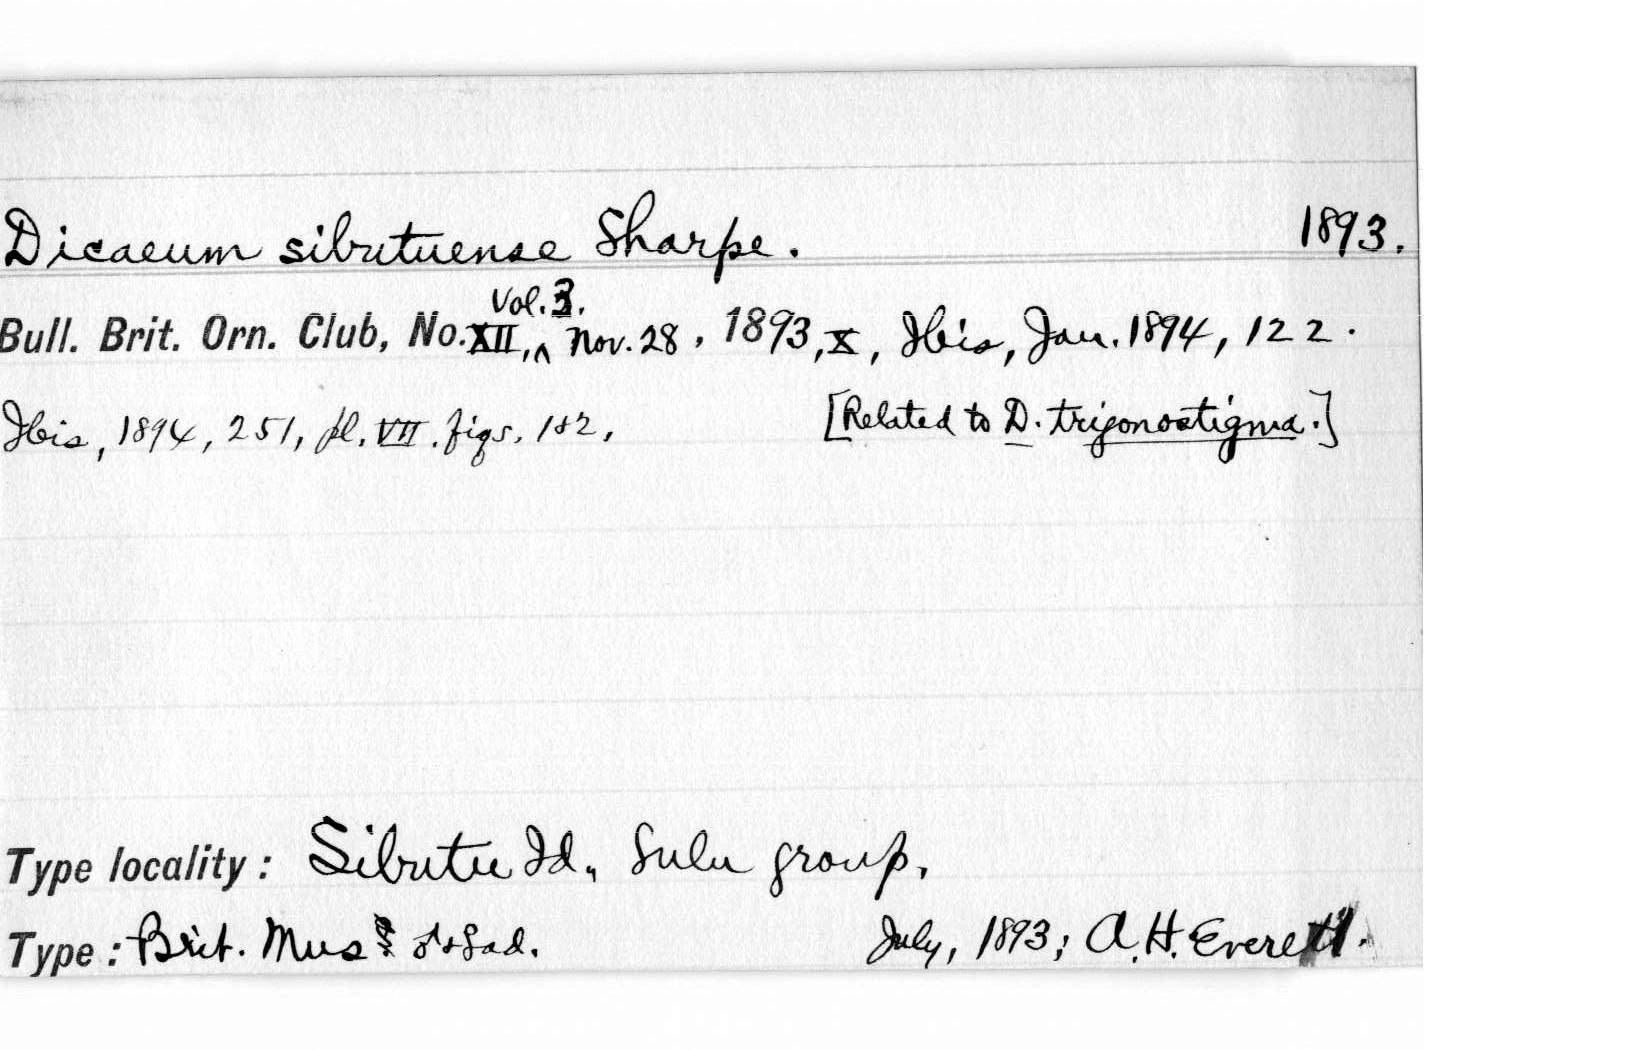 Dicaeum sibutuense Sharpe. 1893.
Vol. 3.
Bull. Brit. Orn. Club, No. XII, ^ Nov. 28, 1893, X, Ibis, Jan. 1894, 122.
Ibis, 1894, 251, pl. VII. figs. 1+2. [Related to D. trigonostigma.]
Type locality: Sibutu Id., Sulu group.
Type: Brit. Mus ♂+♀ad. July, 1893; A.H. Everett.